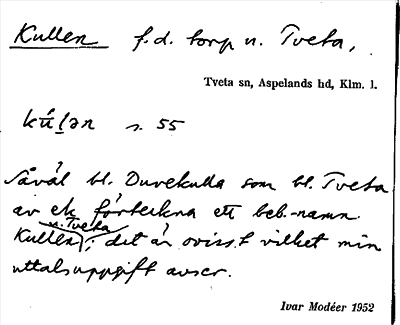 Kullen f.d. torp u. Tveta,
Tveta sn, Aspelands hd, Klm. l.
kúḷən s. 55
Såväl bl. Duvekulla som bl. Tveta
av ek förteckna ett beb.-namn
u. Tveta
Kullen; det är ovisst vilket min
uttalsuppgift avser.
Ivar Modéer 1952